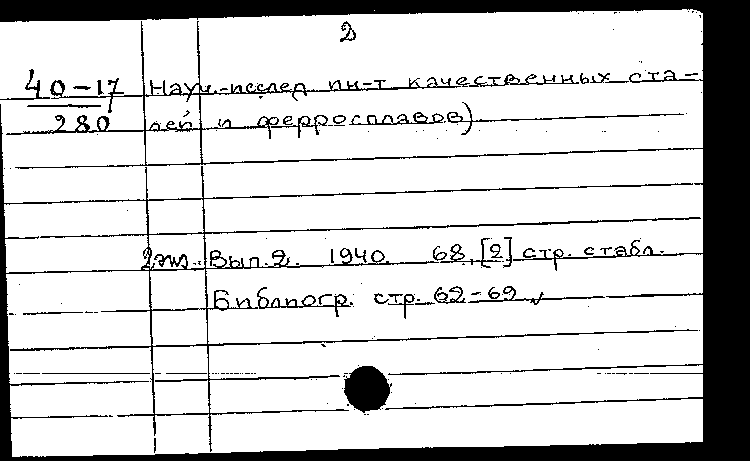 2
40-17 Науч.-исслед ин-т качественных ста-
280 лей и ферросплавов)
2экз. Вып.2. 1940. 68,[2] стр. стабл.
Библиогр. стр. 62-69